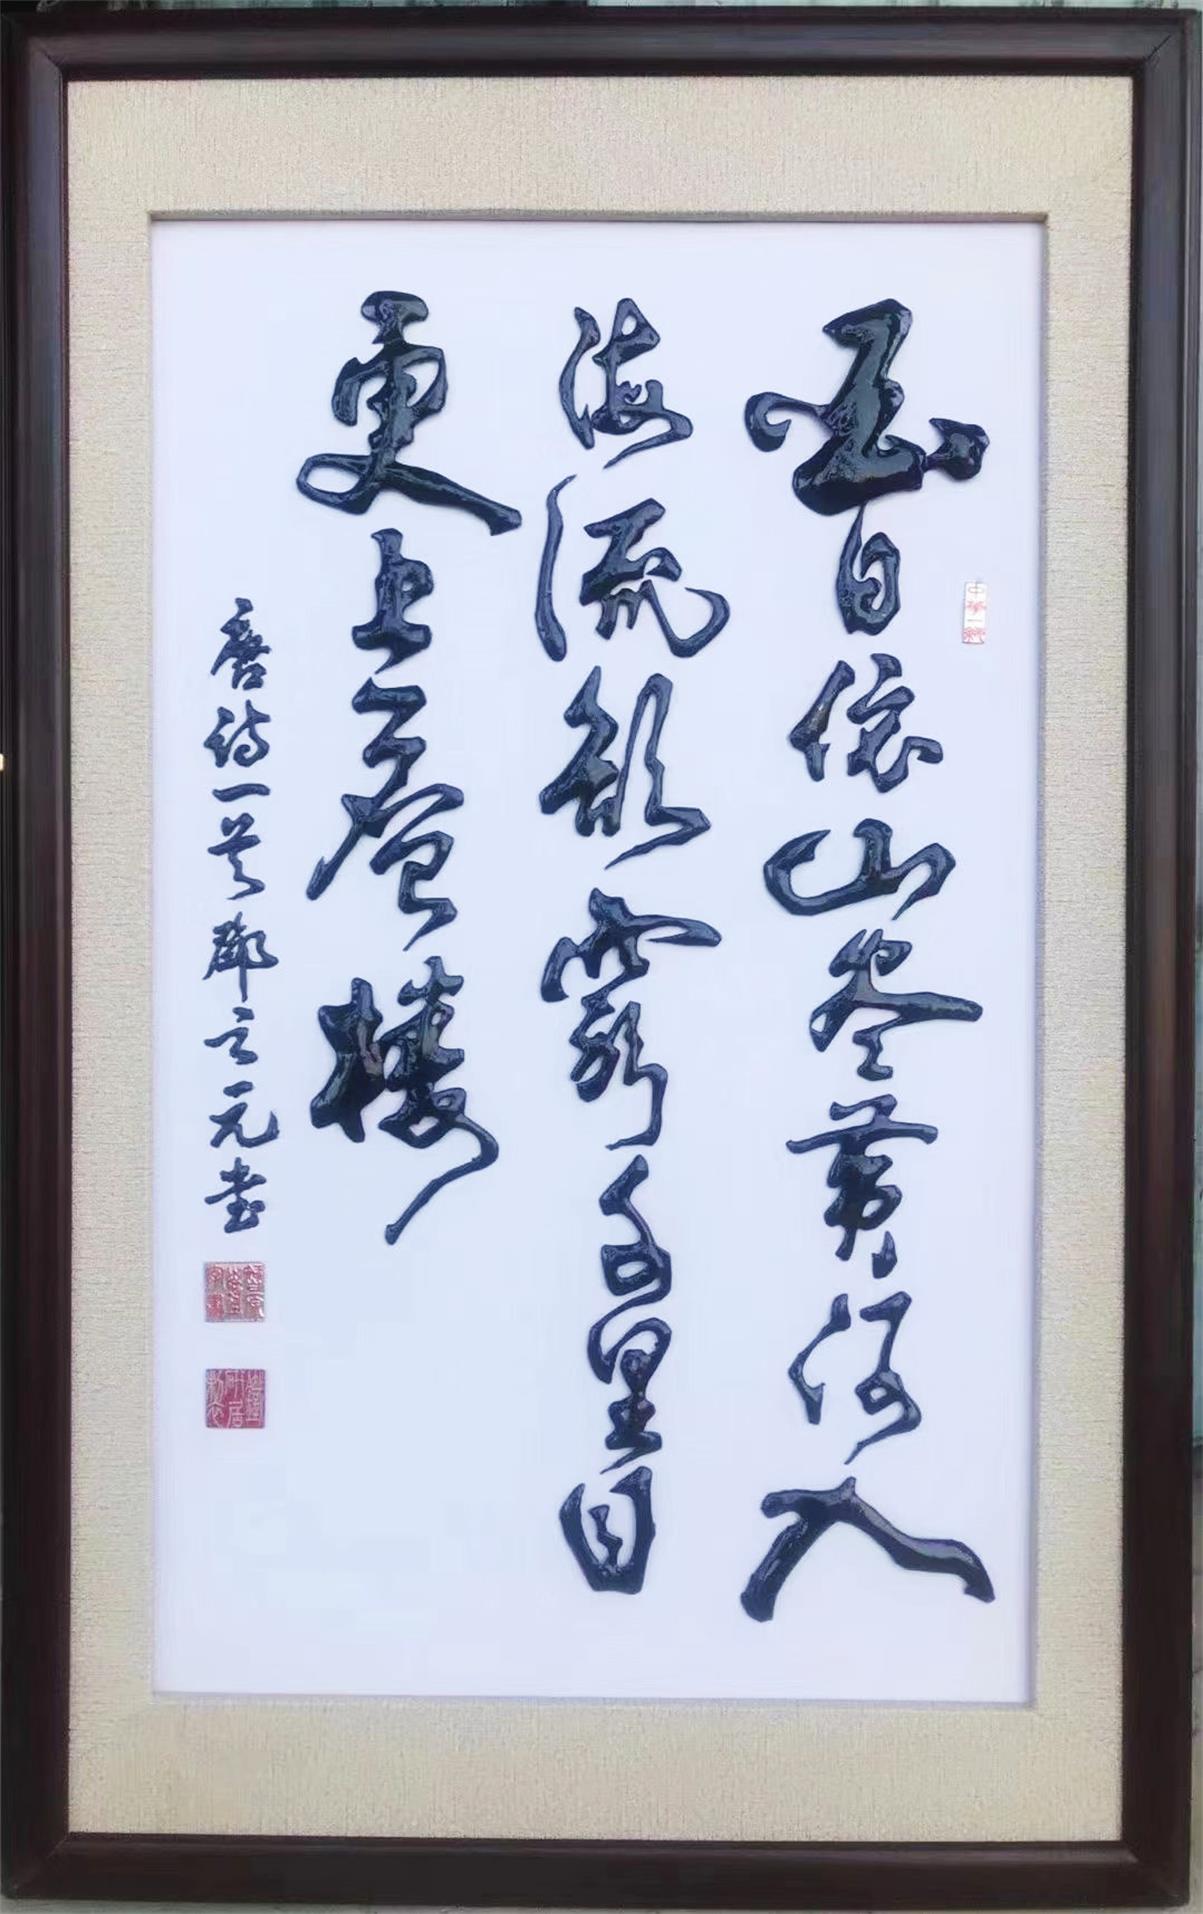 白日依山尽黄河入
海流欲穷千里目
更上一层楼
唐诗一首邓立元书